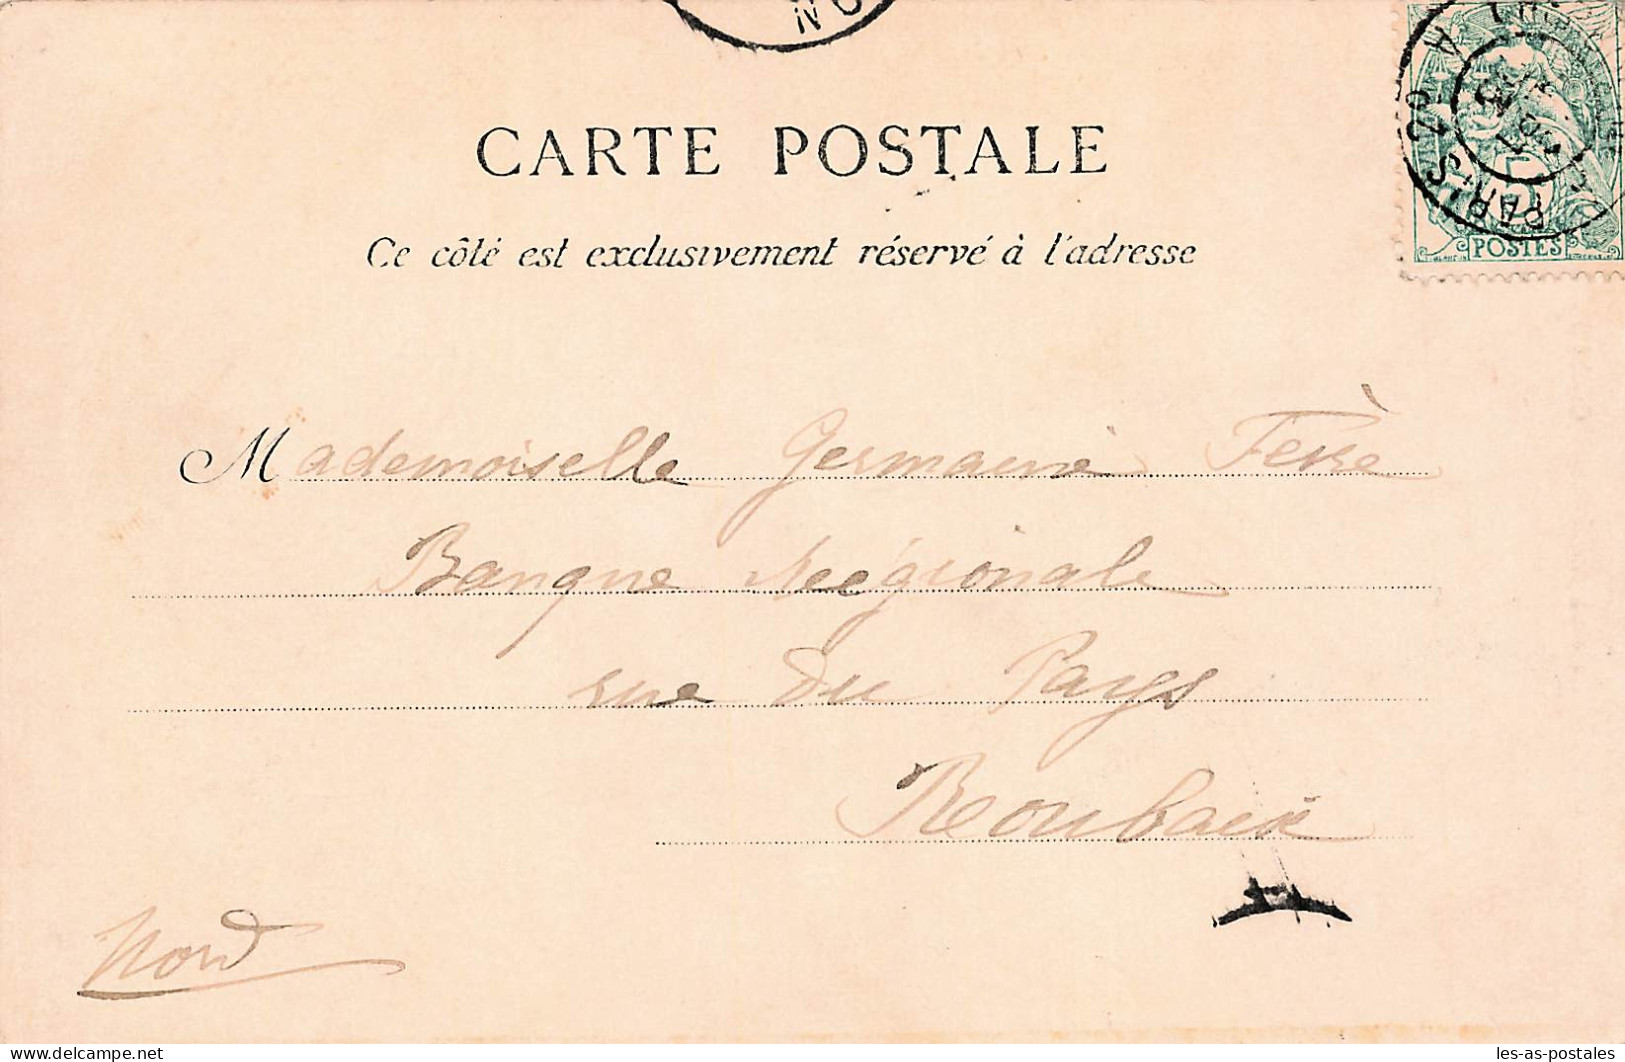 CARTE POSTALE
Ce côté est exclusivement réservé à l'adresse
5
POSTES
PARIS
Mademoiselle Germaine Ferrè
Banque Régionale
rue du Pays
Roubaix
Nord
les-as-postales